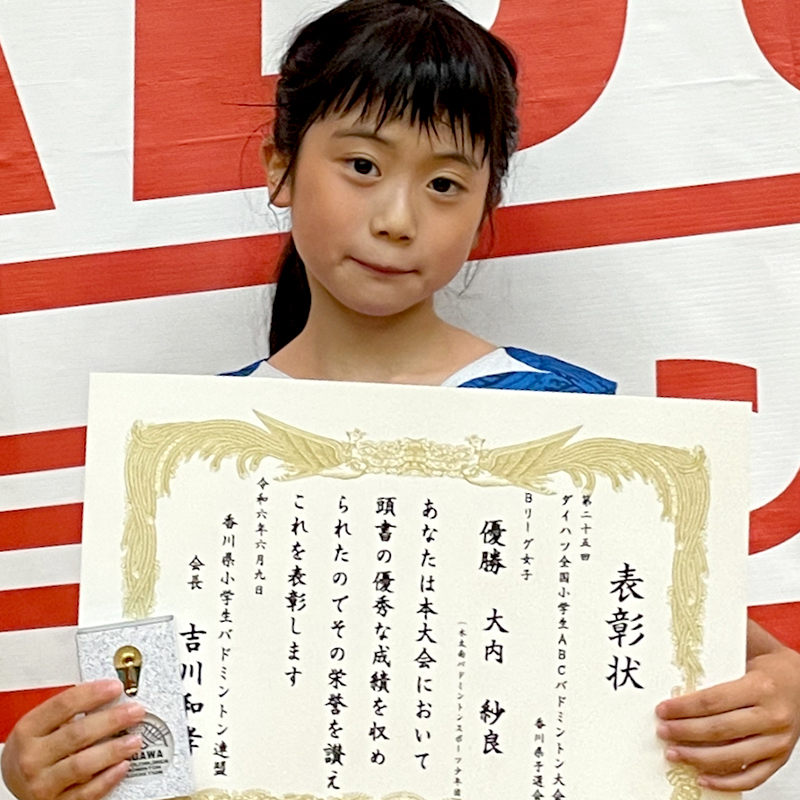 表彰状
第二十五回
ダイハツ全国小学生ABCバドミントン大会
香川県予選会
Bリーグ女子
優勝 大内 紗良
バドミントンスポーツ少年団
あなたは本大会において
頭書の優秀な成績を収め
られたのでその栄誉を讃え
これを表彰します
令和六年六月九日
香川県小学生バドミントン連盟
会長 吉川和孝